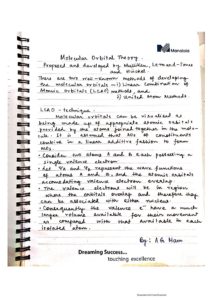 Manodaya
Molecular Orbital Theory :
Proposed and developed by Mulliken, Lennard-Jones
and Hückel
There are two well-known methods of developing
the molecular orbitals - 1) Linear combination of
Atomic Orbitals (LCAO) methods, and
2) United Atom Methods
LCAO - technique -
Molecular orbitals can be visualised as
being made up of appropriate atomic orbitals
provided by the atoms joined together in the mole-
cule. It is assumed that AOs of constituents
combine in a linear additive fashion to form
MOs.
• Consider two atoms A and B each possessing a
single valence electron.
• Let ΨA and ΨB represent the wave functions
of atoms A and B, and the atomic orbitals
accomodating valence electron overlap
• The valence electrons will be in region
where the orbitals overlap and therefore they
can be associated with either nucleus
• Consequently the valence e⁻ have a much
larger volume available for their movement
as compared with that available to each
isolated atom.
By : AG Ham
Dreaming Success...
teaching excellence